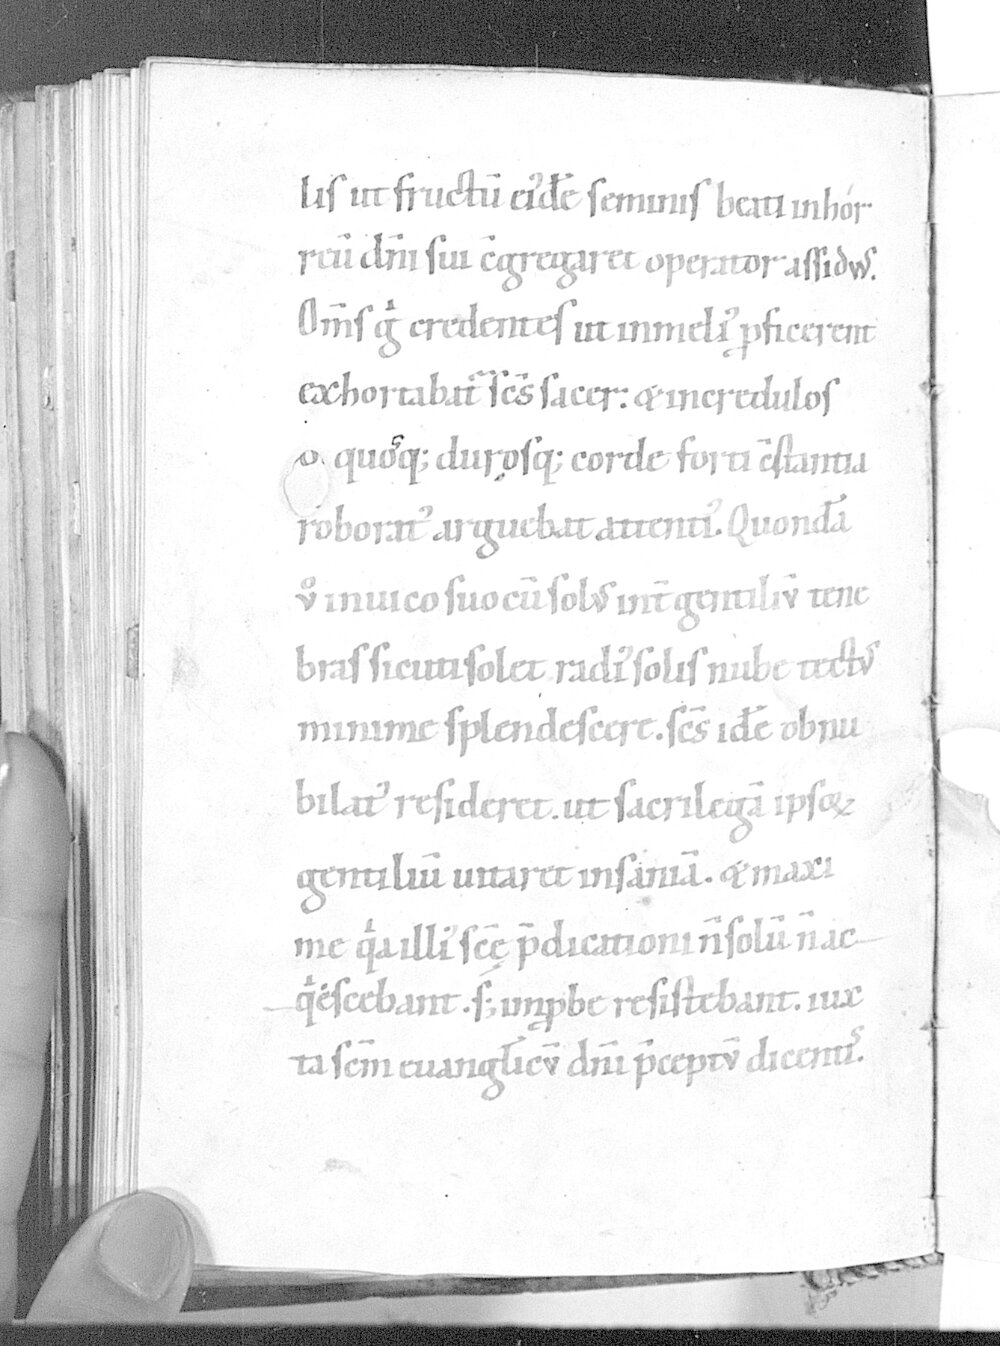 lis ut fructũ ei᷒dẽ seminis beati inhor
reũ dñi sui c̃gregaret operator assidus᷒.
Om̃s gͥ credentes ut inmeli᷒ ꝓficerent
exhortabat᷒ sc̃s sacer: & incredulos
o. quoq; durosq; corde forti c̃stantia
roborat᷒ arguebat attenti᷒. Quondã
vͦ inuico suo cũ solus᷒ int̃ gentiliũ tene
bras sicuti solet radi᷒ solis nube tectus᷒
minime splendescere. sc̃s idẽ obnu
bilat᷒ resideret. ut sacrilegã ipsoꝝ
gentiliũ uitaret insaniã. & maxi
me qͥa illi᷒ sc̃ę p̃dicationi ñ solũ ñ ac
qͥescebant. s; inꝓbe resistebant. iux
ta sc̃m euangl̃icũ dñi p̃ceptũ dicentis᷒.